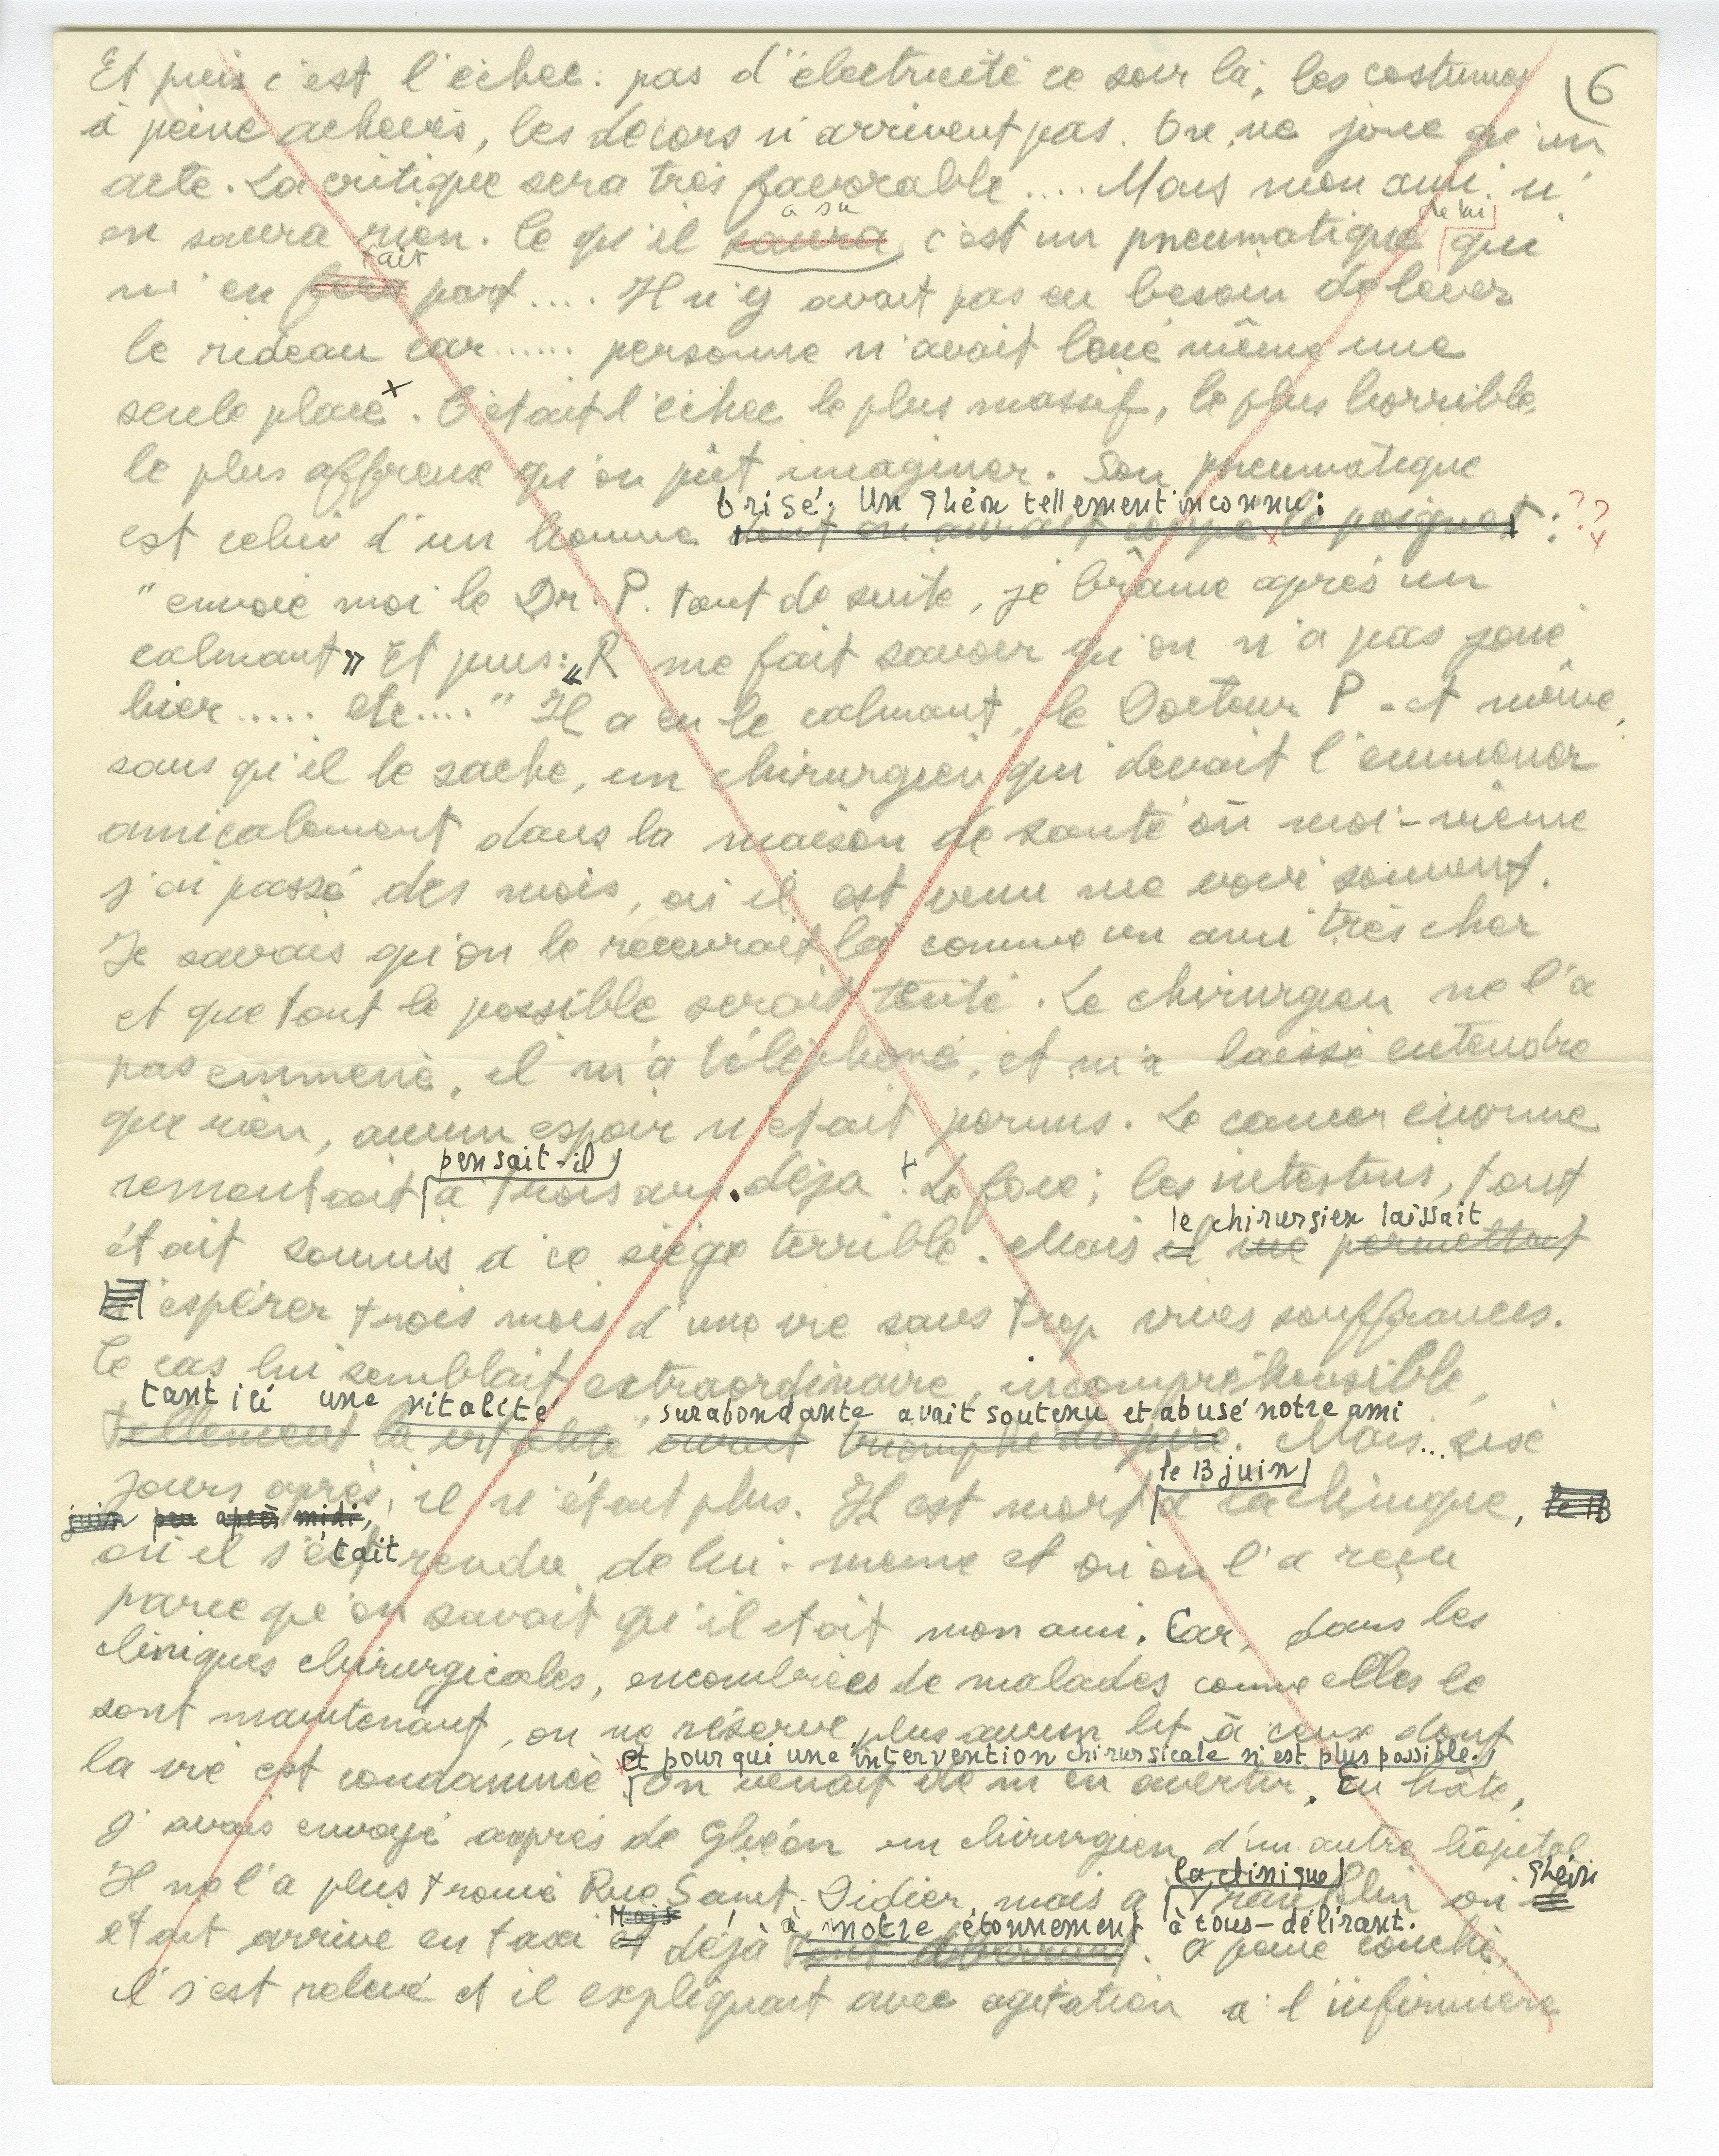 6
Et puis c'est l'échec : pas d'électricité ce soir là, les costumes
à peine achevés, les décors n'arrivent pas. On ne joue qu'un
acte. La critique sera très favorable .... Mais mon ami n'
a su
de lui
en saura rien. Ce qu'il saura, c'est un pneumatique qui
fait
m'en fera part .... Il n'y avait pas eu besoin de lever
le rideau car ...... personne n'avait loué même une
seule place x. C'était l'échec le plus massif, le plus horrible,
le plus affreux qu'on pût imaginer. Son pneumatique
brisé, un Ghéon tellement inconnu :
est celui d'un homme dont on aurait coupé le poignet : ??
"envoie moi le Dr. P. tout de suite, je brâme après un
calmant » Et puis : « R me fait savoir qu'on n'a pas joué
hier ..... etc...." Il a eu le calmant, le Docteur P - et même,
sans qu'il le sache, un chirurgien qui devait l'emmener
amicalement dans la maison de santé où moi-même
j'ai passé des mois, où il est venu me voir souvent.
Je savais qu'on le recevrait là comme un ami très cher
et que tout le possible serait tenté. Le chirurgien ne l'a
pas emmené, il m'a téléphoné, et m'a laissé entendre
que rien, aucun espoir n'était permis. Le cancer énorme
pensait-il
remontait à trois ans. déjà ! Le foie, les intestins, tout
le chirurgien laissait
était soumis à ce siège terrible. Mais il me permettait
espérer trois mois d'une vie sans trop vives souffrances.
Ce cas lui semblait extraordinaire, incompréhensible,
tant ici une vitalité surabondante avait soutenu et abusé notre ami
Tellement la vitalité avait triomphé du pire. Mais... six
le 13 juin
jours après, il n'était plus. Il est mort à la clinique, le 13
juin peu après midi,
était
où il s'est rendu de lui-même et où on l'a reçu
parce qu'on savait qu'il était mon ami. Car, dans les
cliniques chirurgicales, encombrées de malades comme elles le
sont maintenant, on ne réserve plus aucun lit à ceux dont
et pour qui une intervention chirurgicale n'est plus possible.
la vie est condamnée On venait de m'en avertir. En hâte,
j'avais envoyé auprès de Ghéon un chirurgien d'un autre hôpital
la clinique
Ghéon
Il ne l'a plus trouvé Rue Saint-Didier, mais à Franklin où il
Mais à notre étonnement à tous - délirant.
était arrivé en taxi et déjà tout. A peine couché,
il s'est relevé et il expliquait avec agitation à l'infirmière